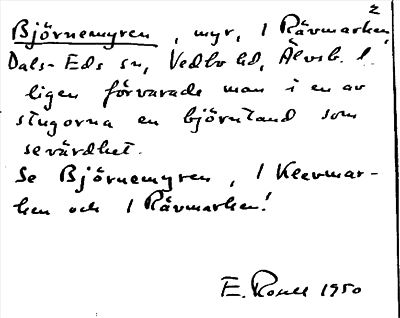 2
Björnemyren, myr, 1 Rävmarken,
Dals-Eds sn, Vedbo hd, Älvsb. l.
ligen förvarade man i en av
stugorna en björntand som
sevärdhet.
Se Björnemyren, 1 Klevmar-
ken och 1 Rävmarken!
E. 1950